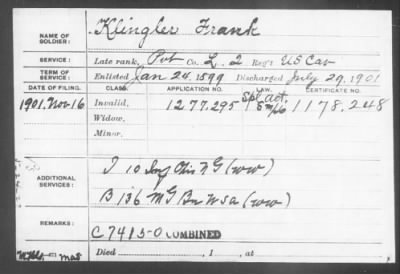 NAME OF SOLDIER: Klingler Frank
SERVICE: Late rank, Pvt Co. L. 2 Reg't US Cav
TERM OF SERVICE: Enlisted Jan 24. 1899 Discharged July 29. 1901
DATE OF FILING. CLASS. APPLICATION NO. LAW. CERTIFICATE NO.
1901. Nov 16 Invalid. 1277.295 Spl act. 1178.248
Widow.
Minor.
ADDITIONAL SERVICES: I 10 Inf Ohio N G (WW)
B 136 M G Bn U S a (WW)
REMARKS: C 7415-0 COMBINED
Died , 1 , at